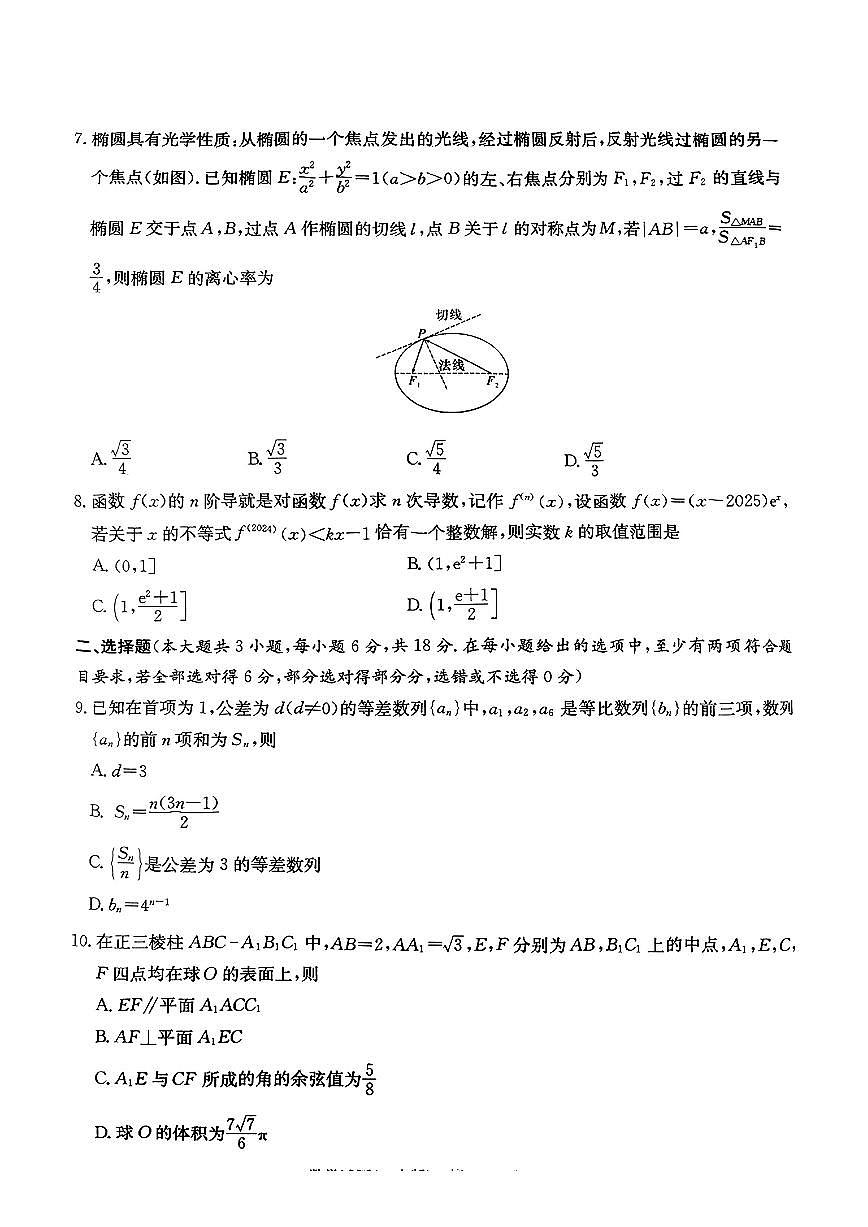 7. 椭圆具有光学性质:从椭圆的一个焦点发出的光线,经过椭圆反射后,反射光线过椭圆的另一
个焦点(如图).已知椭圆 E:x²/a²+y²/b²=1(a>b>0)的左、右焦点分别为 F₁,F₂,过 F₂ 的直线与
椭圆 E 交于点 A,B,过点 A 作椭圆的切线 l,点 B 关于 l 的对称点为 M,若|AB|=a,S△MAB/S△AF₁B=
3/4,则椭圆 E 的离心率为
切线
P
法线
F₁ F₂
A. √3/4 B. √3/3 C. √5/4 D. √5/3
8. 函数 f(x)的 n 阶导就是对函数 f(x)求 n 次导数,记作 f⁽ⁿ⁾(x),设函数 f(x)=(x-2025)eˣ,
若关于 x 的不等式 f⁽²⁰²⁴⁾(x)<kx-1 恰有一个整数解,则实数 k 的取值范围是
A. (0,1] B. (1,e²+1]
C. (1,(e²+1)/2] D. (1,(e+1)/2]
二、选择题(本大题共 3 小题,每小题 6 分,共 18 分.在每小题给出的选项中,至少有两项符合题
目要求,若全部选对得 6 分,部分选对得部分分,选错或不选得 0 分)
9. 已知在首项为 1,公差为 d(d≠0)的等差数列{aₙ}中,a₁,a₂,a₆ 是等比数列{bₙ}的前三项,数列
{aₙ}的前 n 项和为 Sₙ,则
A. d=3
B. Sₙ=n(3n-1)/2
C. {Sₙ/n}是公差为 3 的等差数列
D. bₙ=4ⁿ⁻¹
10. 在正三棱柱 ABC-A₁B₁C₁ 中,AB=2,AA₁=√3,E,F 分别为 AB,B₁C₁ 上的中点,A₁,E,C,
F 四点均在球 O 的表面上,则
A. EF∥平面 A₁ACC₁
B. AF⊥平面 A₁EC
C. A₁E 与 CF 所成的角的余弦值为5/8
D. 球 O 的体积为7√7/6 π